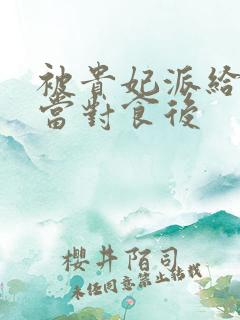 被貴妃派給
當對食後
櫻井陌司
未任同意禁止轉載